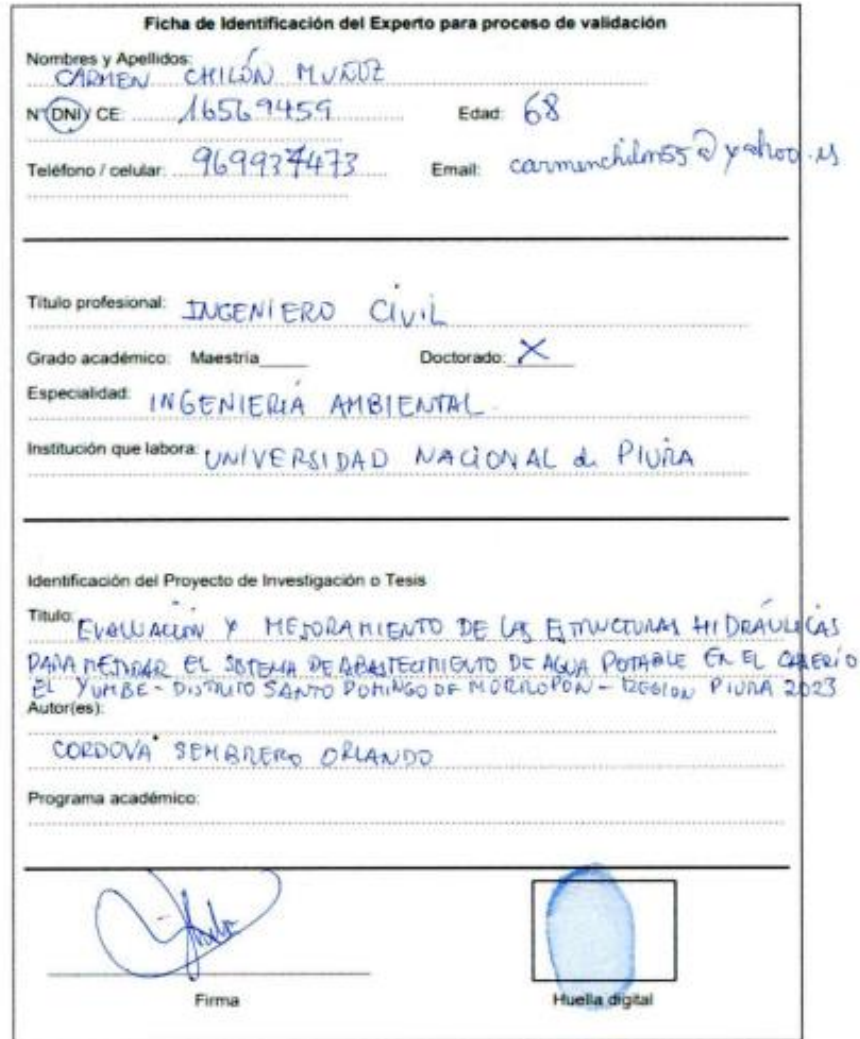 Ficha de Identificación del Experto para proceso de validación
Nombres y Apellidos:
CARMEN CHILÓN MUÑOZ
N° DNI / CE: 16569459 Edad: 68
Teléfono / celular: 969937473 Email: carmenchilon55@yahoo.es
Título profesional: INGENIERO CIVIL
Grado académico: Maestría Doctorado: X
Especialidad: INGENIERÍA AMBIENTAL.
Institución que labora: UNIVERSIDAD NACIONAL de PIURA
Identificación del Proyecto de Investigación o Tesis
Título: EVALUACIÓN Y MEJORAMIENTO DE LAS ESTRUCTURAS HIDRÁULICAS
PARA MEJORAR EL SISTEMA DE ABASTECIMIENTO DE AGUA POTABLE EN EL CASERÍO
EL YUMBE - DISTRITO SANTO DOMINGO DE MORROPÓN - REGION PIURA 2023
Autor(es):
CORDOVA SEMBRERO ORLANDO
Programa académico:
Firma Huella digital